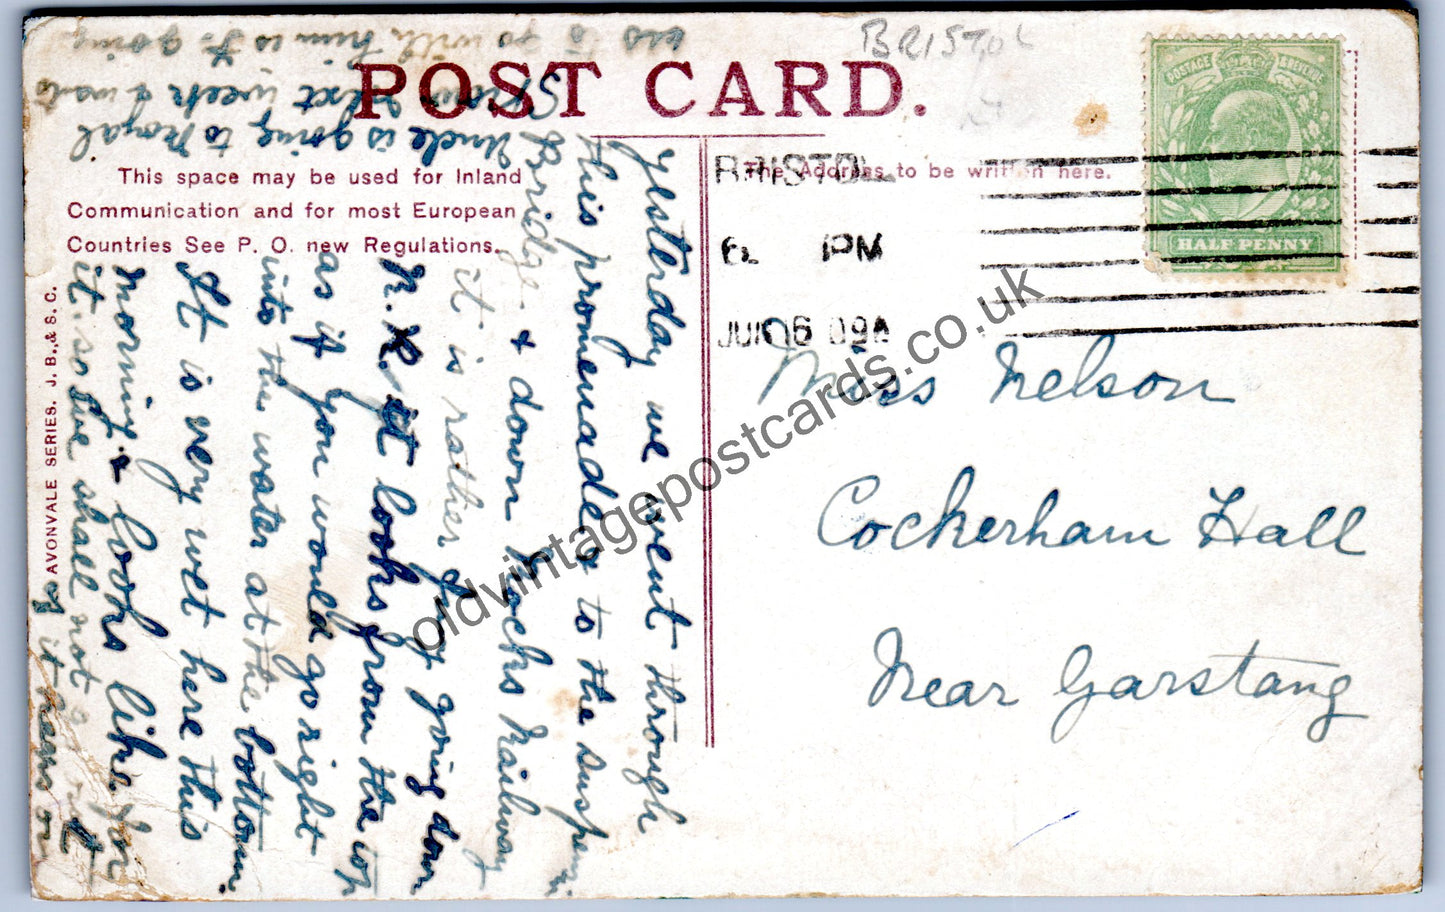 BRISTOL
POST CARD.
This space may be used for Inland
Communication and for most European
Countries See P. O. new Regulations.
The Address to be written here.
AVONVALE SERIES. J. B., & S. C.
BRISTOL
6 PM
JUN 6 09
POSTAGE & REVENUE
HALFPENNY
Miss Nelson
Cockerham Hall
Near Garstang
Yesterday we went through
this promenade & to the Suspension
Bridge & down Rocks Railway
it is rather going down
N. R. it looks from the top
as if you would go right
into the water at the bottom.
It is very wet here this
morning & looks like for
it. so we shall not go
if it rains on
Uncle is going to Royal
Show next week & wants
us to go with him is F. going
oldvintagepostcards.co.uk